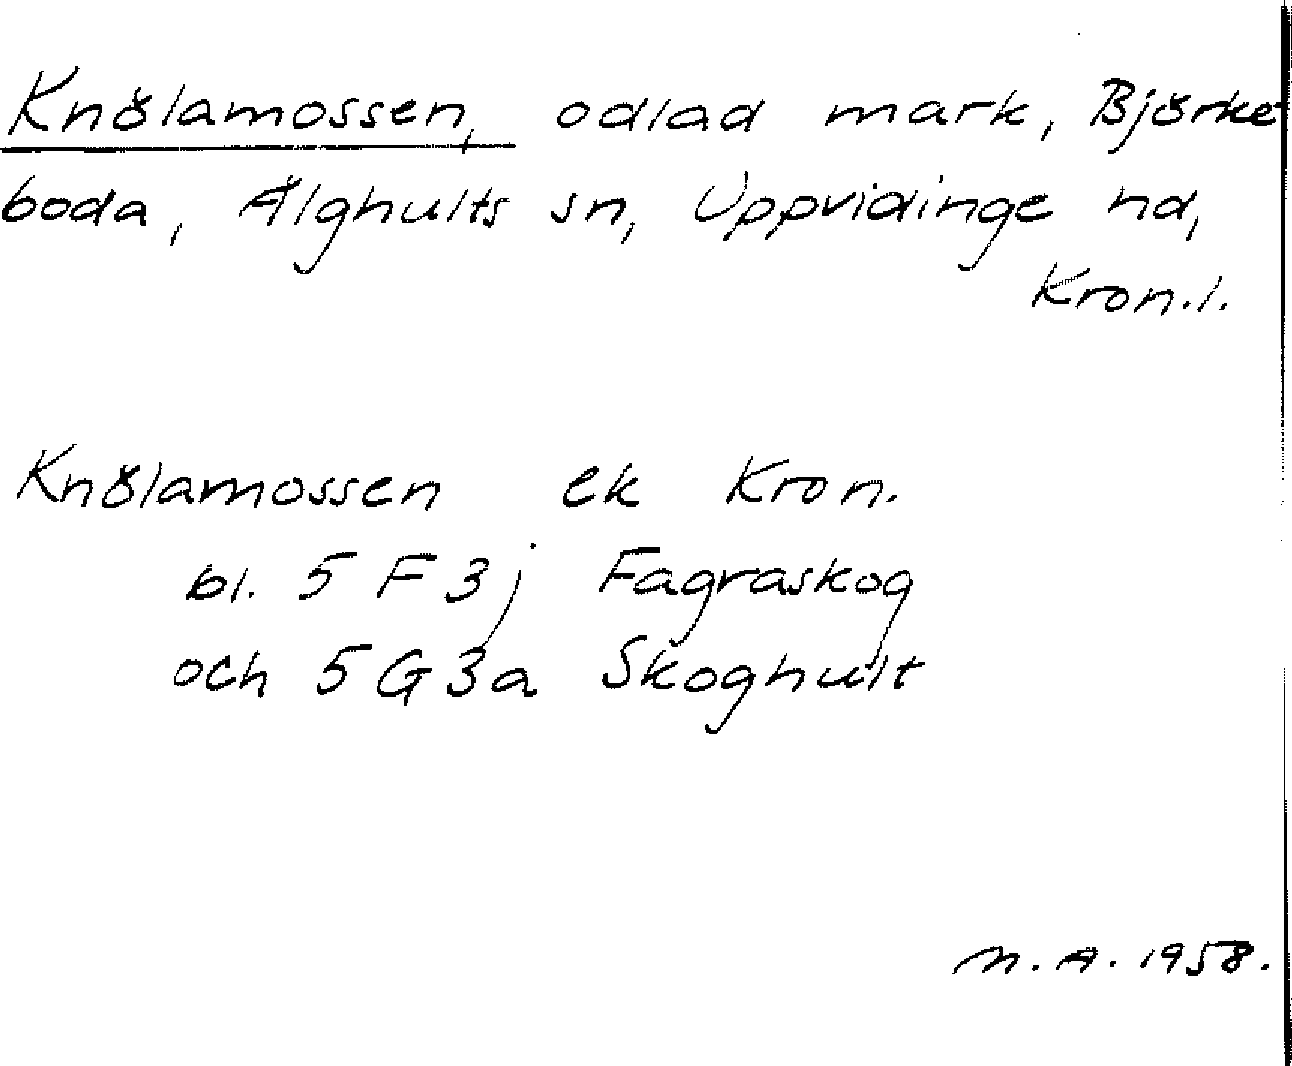 Knölamossen, odlad mark, Björke
boda, Älghults sn, Uppvidinge hd,
Kron.l.
Knölamossen ek Kron.
bl. 5 F 3 j Fagraskog
och 5 G 3 a Skoghult
M. A. 1958.